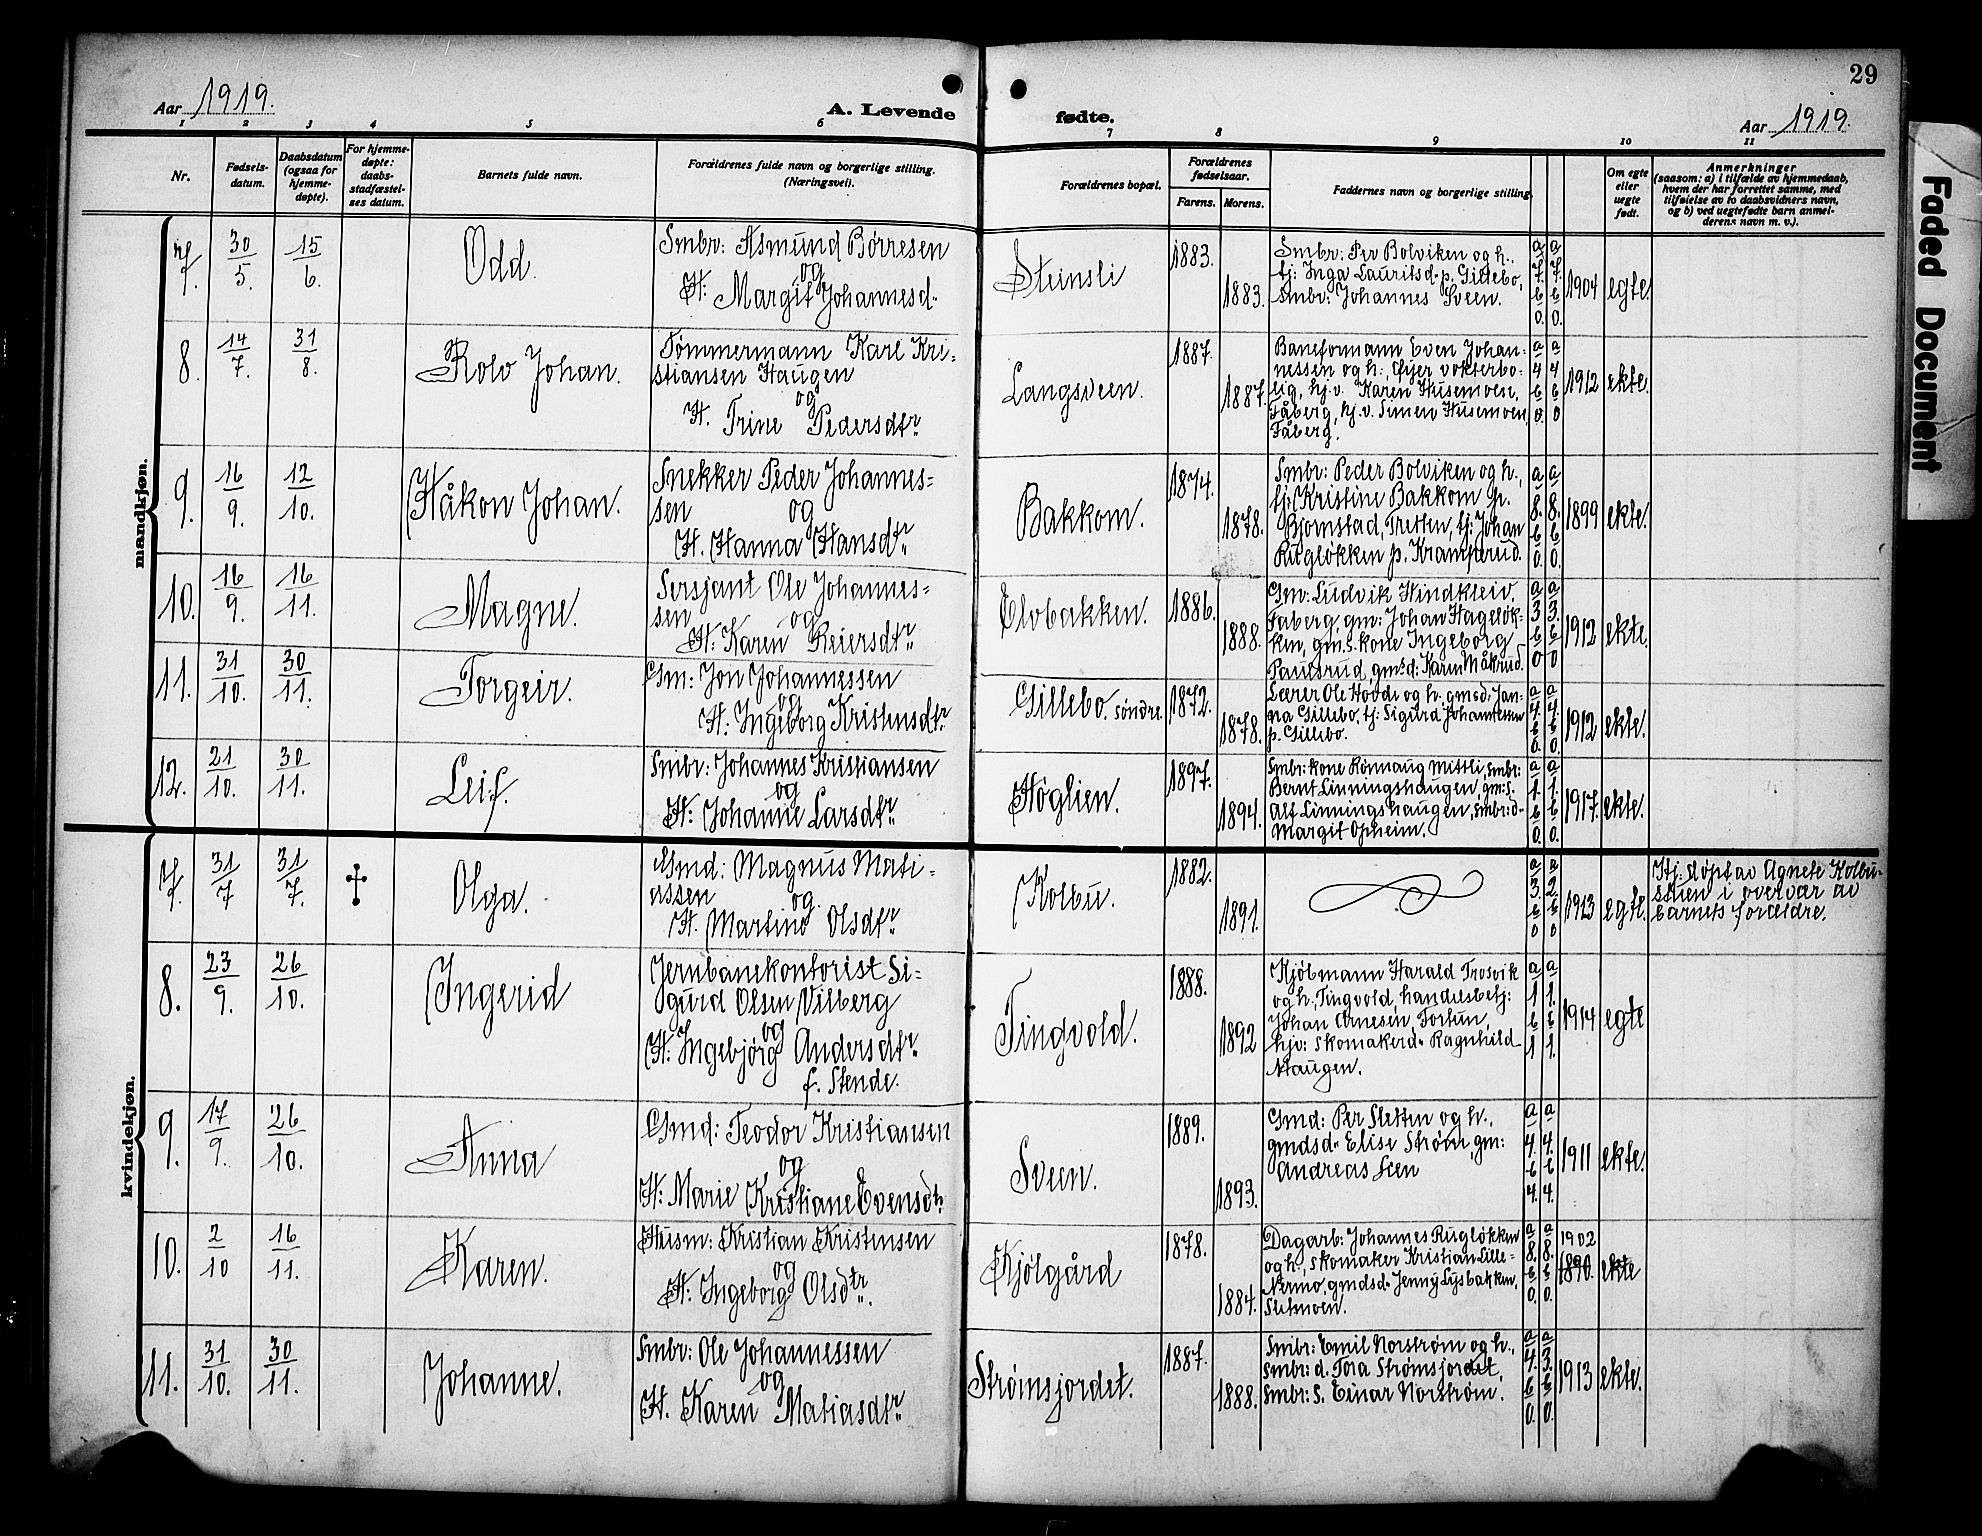 29
Aar 1919.
A. Levende fødte.
Aar 1919.
1 2 3 4 5 6 7 8 9 10 11
Nr.
Fødsels-
datum.
Daabsdatum
(ogsaa for
hjemme-
døpte).
For hjemme-
døpte:
daabs-
stadfæstel-
ses datum.
Barnets fulde navn.
Forældrenes fulde navn og borgerlige stilling.
(Næringsvei).
Forældrenes bopæl.
Forældrenes
fødselsaar.
Farens. Morens.
Faddernes navn og borgerlige stilling.
Om egte
eller
uegte
født.
Anmerkninger
(saasom: a) i tilfælde av hjemmedaab,
hvem der har forrettet samme, med
tilføielse av to daabsvidners navn,
og b) ved uegtefødte barn anmel-
derens navn m. v.).
Faded Document
mandkjøn.
7. 30/5. 15/6. Odd.
Smbr: Asmund Børresen
og
H: Margit Johannesd.
Steinsli 1883. 1883.
Smbr: Per Bolviken og h.,
tj: Inga Lauritsd. p. Gillebo,
Smbr: Johannes Sveen.
a 7. b 0. a 7. b 0. 1904 egte.
8. 14/7. 31/8. Rolv Johan.
Tømmermann Karl Kri-
stiansen Haugen
og
H. Trine Pedersdtr.
Langsveen. 1887. 1887.
Baneformann Even Johan-
nessen og h., Øyer vokterbo-
lig, hj.v. Karen Husemoen,
Fåberg, hj.v. Simen Husemoen,
Fåberg.
a 4 b 0. a 4 b 0 1912 ekte.
9. 16/9. 12/10. Håkon Johan.
Snekker Peder Johannes-
sen
og
H. Hanna Hansdtr.
Bakkom. 1874. 1878.
Smbr: Peder Bolviken og h.,
tj: Kristine Bakkom p.
Bjornstad, Tretten, tj: Johan
Rugløkken p. Kramperud.
a 8. b 0. a 8. b 0. 1899 ekte.
10. 16/9. 16/11. Magne.
Sersjant Ole Johannes-
sen
og
H. Karen Reiersdtr.
Elvbakken. 1886. 1888.
Gm: Ludvik Hindkleiv,
Faberg, gm: Johan Hageløk-
ken, gm.s. kone Ingeborg
Paulsrud, gmsd: Karen Måkrud.
a 3 b 0 a 3. b 0 1912 ekte.
11. 31/10. 30/11. Torgeir.
Gm: Jon Johannessen
og
H: Ingeborg Kristensdtr.
Gillebo. søndre. 1872. 1878.
Lærer Ole Hovde og h. gmsd: Jan-
na Gillebo, tj: Sigurd Johannessen
p. Gillebo.
a 4. b 0. a 4. b 0. 1912 ekte.
12. 21/10. 30/11. Leif.
Smbr: Johannes Kristiansen
og
H: Johanne Larsdtr.
Høglien. 1897. 1894.
Smbr: kone Rønnaug Mittli, smbr:
Bernt Linningshaugen, gm: s.
Alf Linningshaugen, smbr: d.
Margit Opheim.
a 1. b 0. a 1. b 0. 1917. ekte.
kvindekjøn.
7. 31/7 31/7. Olga.
Gmd: Magnus Mati-
assen
og.
H. Martine Olsdtr.
Kolbu. 1882. 1891.
a 3. b 0 a 2. b 0 1913 egte.
Hj. døpt av Agnete Kolbu-
stuen i overvær av
barnets forældre.
8. 23/9. 26/10. Ingerid
Jernbanekontorist Si-
gurd Olsen Vilberg
og
H: Ingebjørg Andersdtr.
f. Stende.
Tingvold. 1888. 1892
Kjøbmann Harald Trosvik
og h., Tingvold, handelsbetj:
Johan Arnesen, Tortun,
hjv: skomakerd. Ragnhild
Haugen.
a 1 b 1 a 1. b 1. 1914 egte
9. 17/9. 26/10. Anna
Gmd: Teodor Kristiansen
og
H: Marie Kristiane Evensdtr.
Sveen. 1889. 1893.
Gmd: Per Sletten og h.,
gmdsd. Elise Strøm, gm:
Andreas Seen
a 4. b 4. a 4. b 4. 1911 ekte.
10. 2/10 16/11. Karen.
Husm: Kristian Kristensen
og
H: Ingeborg Olsdtr.
Kjølgård 1878. 1884.
Dagarb: Johannes Rugløkken
og h., skomaker Kristian Lille-
Nermo, gmdsd. Jenny Lysbakken,
Slitmoen.
a 8. b 0. a 8. b 0. 1902 1890. ekte
11. 31/10. 30/11. Johanne.
Smbr: Ole Johannessen
og
H. Karen Matiasdtr.
Strømsjordet. 1887. 1888.
Smbr: Emil Norstrøm og h.,
Smbr: d. Tora Strømsjordet,
Smbr: s. Einar Norstrøm.
a 4. b 0. a 3. b 0. 1913 ekte.